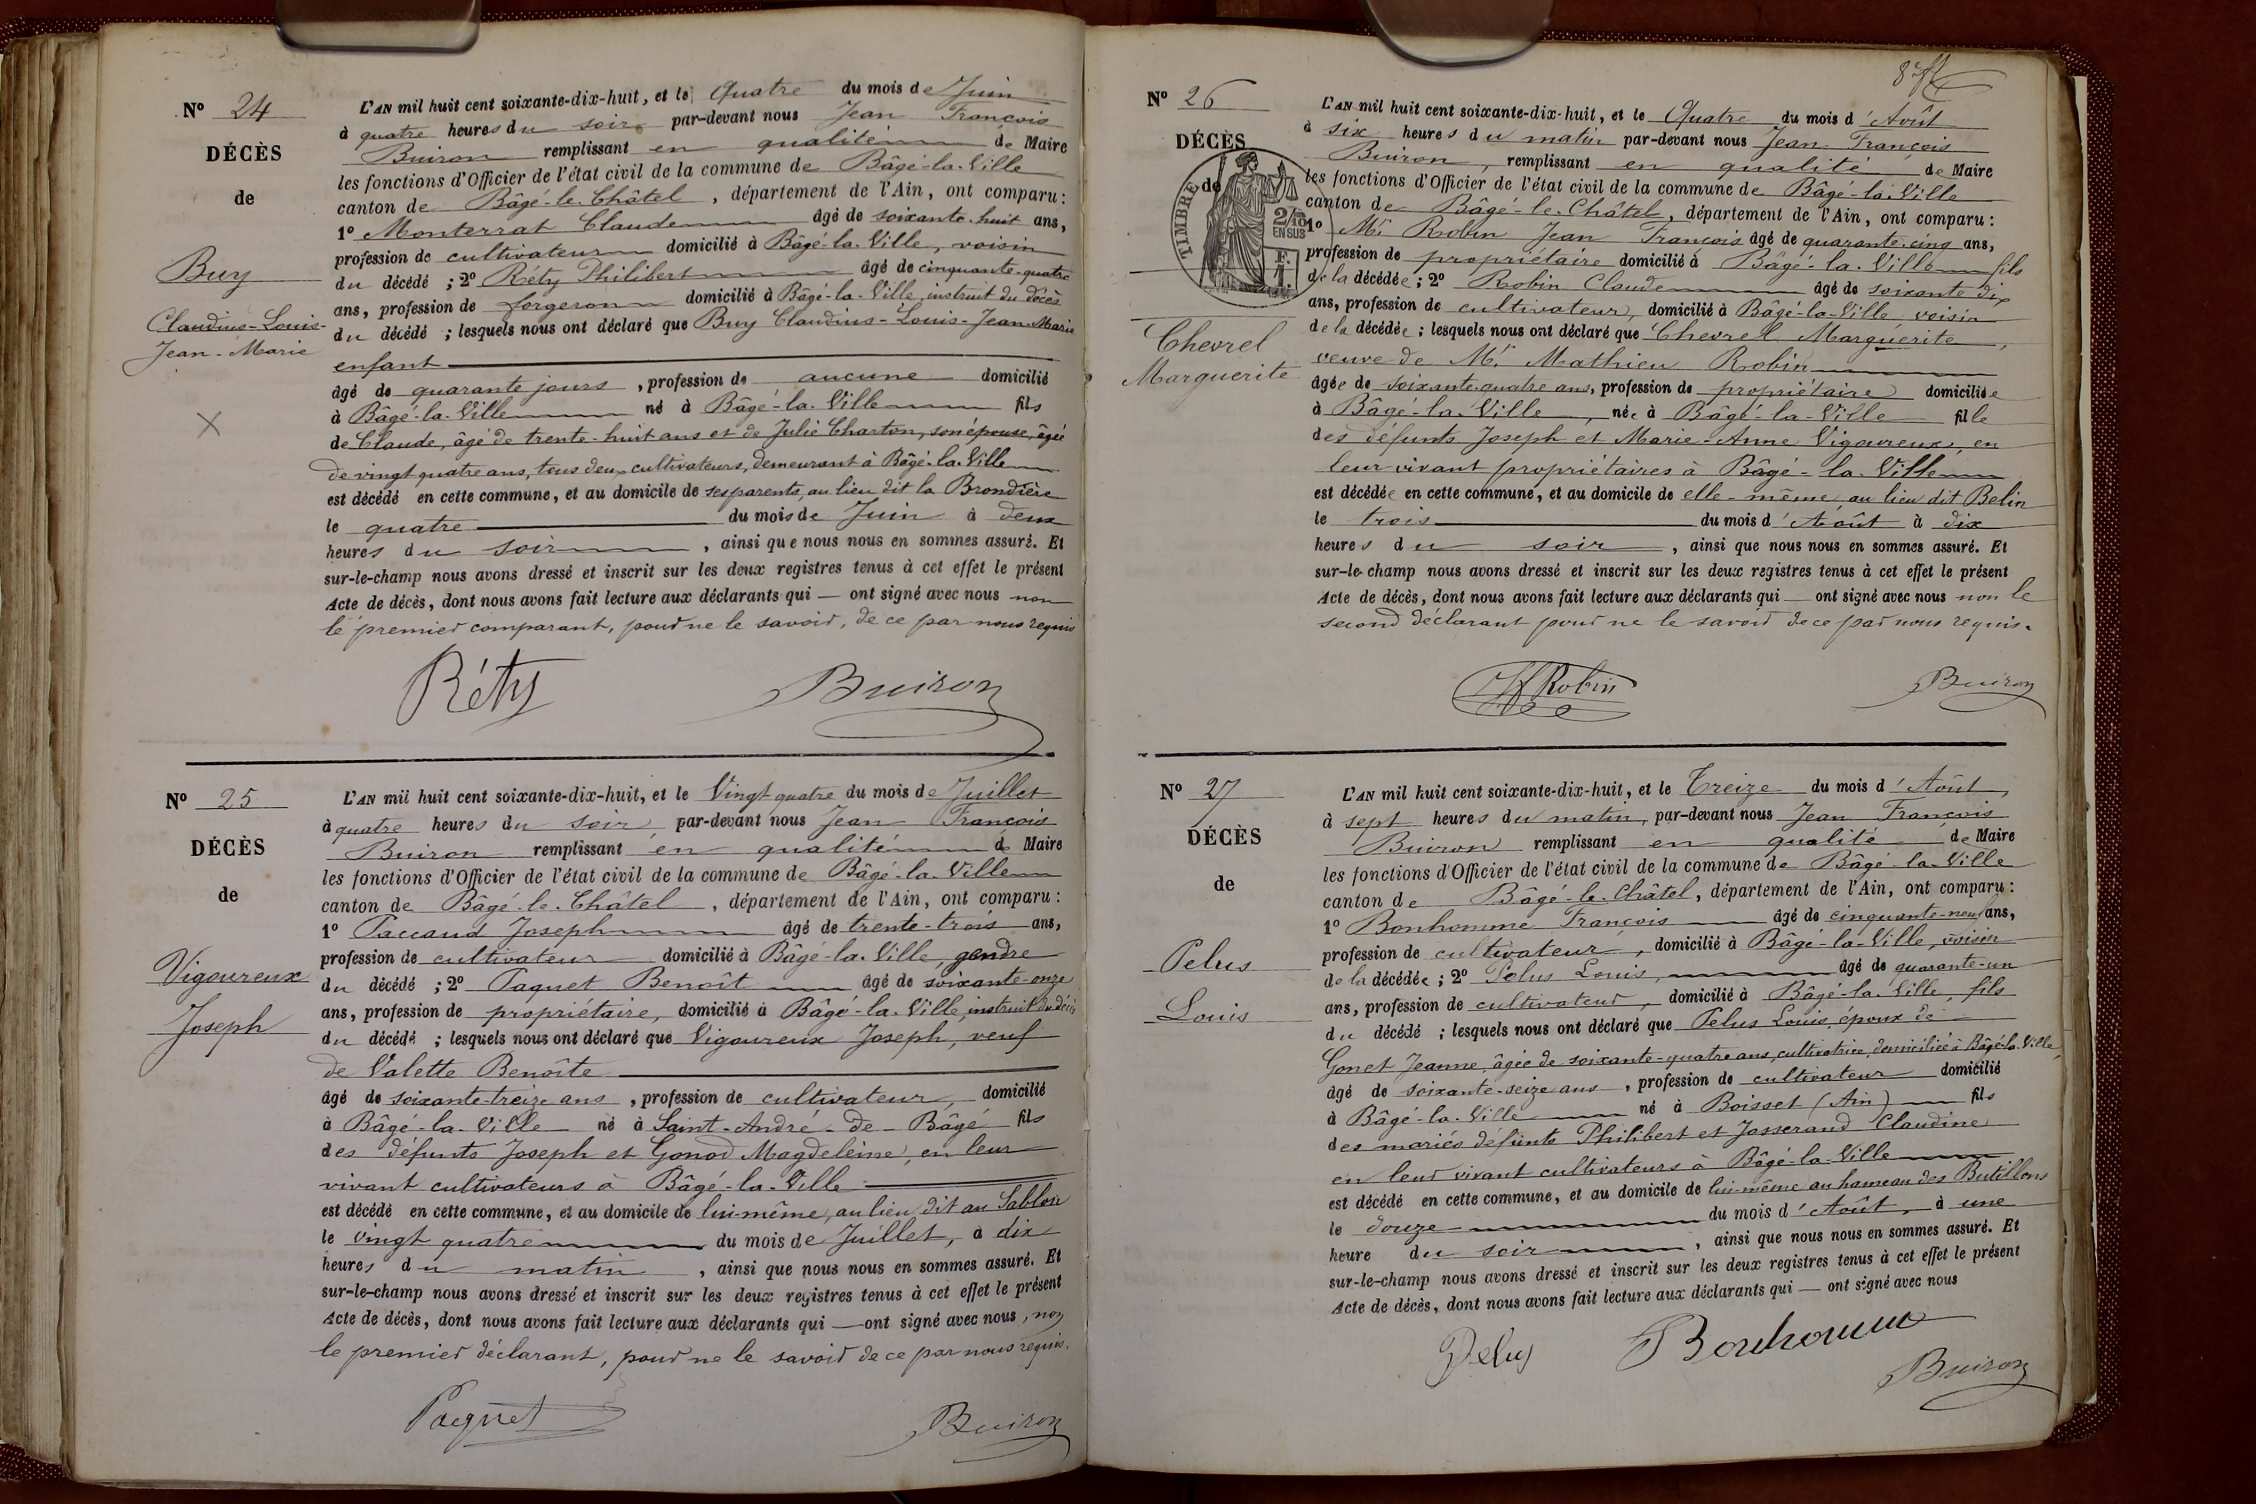 N° 24
DÉCÈS
de
Buy
Claudius-Louis-
Jean-Marie
L'AN mil huit cent soixante-dix-huit, et le Quatre du mois de Juin
à quatre heures du soir par-devant nous Jean François
Buiron remplissant en qualité de Maire
les fonctions d'Officier de l'état civil de la commune de Bâgé-la-Ville
canton de Bâgé-le-Châtel, département de l'Ain, ont comparu :
1° Monterrat Claude âgé de soixante-huit ans,
profession de cultivateur domicilié à Bâgé-la-Ville, voisin
du décédé ; 2° Réty Philibert âgé de cinquante-quatre
ans, profession de forgeron domicilié à Bâgé-la-Ville, instruit du décès
du décédé ; lesquels nous ont déclaré que Buy Claudius-Louis-Jean-Marie
enfant
âgé de quarante jours, profession de aucune domicilié
à Bâgé-la-Ville né à Bâgé-la-Ville fils
de Claude, âgé de trente-huit ans et de Julie Charton, son épouse, âgée
de vingt quatre ans, tous deux cultivateurs, demeurant à Bâgé-la-Ville
est décédé en cette commune, et au domicile de ses parents, au lieu dit la Brondière
le quatre du mois de Juin à deux
heures du soir, ainsi que nous nous en sommes assuré. Et
sur-le-champ nous avons dressé et inscrit sur les deux registres tenus à cet effet le présent
Acte de décès, dont nous avons fait lecture aux déclarants qui — ont signé avec nous non
le premier comparant, pour ne le savoir, de ce par nous requis
Réty Buiron
N° 25
DÉCÈS
de
Vigoureux
Joseph
L'AN mil huit cent soixante-dix-huit, et le Vingt quatre du mois de Juillet
à quatre heures du soir, par-devant nous Jean François
Buiron remplissant en qualité de Maire
les fonctions d'Officier de l'état civil de la commune de Bâgé-la-Ville
canton de Bâgé-le-Châtel, département de l'Ain, ont comparu :
1° Paccaud Joseph âgé de trente-trois ans,
profession de cultivateur domicilié à Bâgé-la-Ville, gendre
du décédé ; 2° Paquet Benoît âgé de soixante-onze
ans, profession de propriétaire, domicilié à Bâgé-la-Ville, instruit du décès
du décédé ; lesquels nous ont déclaré que Vigoureux Joseph, veuf
de Valette Benoîte
âgé de soixante-treize ans, profession de cultivateur, domicilié
à Bâgé-la-Ville né à Saint-André-de-Bâgé fils
des défunts Joseph et Gonod Magdeleine, en leur
vivant cultivateurs à Bâgé-la-Ville
est décédé en cette commune, et au domicile de lui-même, au lieu dit au Sablon
le vingt quatre du mois de Juillet, à dix
heures du matin, ainsi que nous nous en sommes assuré. Et
sur-le-champ nous avons dressé et inscrit sur les deux registres tenus à cet effet le présent
Acte de décès, dont nous avons fait lecture aux déclarants qui — ont signé avec nous, non
le premier déclarant, pour ne le savoir de ce par nous requis.
Paquet Buiron
N° 26
DÉCÈS
de
TIMBRE
2/10
EN SUS
F.
1.
Chevrel
Marguerite
L'AN mil huit cent soixante-dix-huit, et le Quatre du mois d'Août
à six heures du matin par-devant nous Jean François
Buiron, remplissant en qualité de Maire
les fonctions d'Officier de l'état civil de la commune de Bâgé-la-Ville
canton de Bâgé-le-Châtel, département de l'Ain, ont comparu :
1° Mr Robin Jean François âgé de quarante-cinq ans,
profession de propriétaire domicilié à Bâgé-la-Ville fils
de la décédée ; 2° Robin Claude âgé de soixante dix
ans, profession de cultivateur, domicilié à Bâgé-la-Ville voisin
de la décédée ; lesquels nous ont déclaré que Chevrel Marguerite,
veuve de Mr Mathieu Robin
âgée de soixante-quatre ans, profession de propriétaire domiciliée
à Bâgé-la-Ville, née à Bâgé-la-Ville fille
des défunts Joseph et Marie-Anne Vigoureux, en
leur vivant propriétaires à Bâgé-la-Ville
est décédée en cette commune, et au domicile de elle-même au lieu dit Belin
le trois du mois d'Août à dix
heures du soir, ainsi que nous nous en sommes assuré. Et
sur-le-champ nous avons dressé et inscrit sur les deux registres tenus à cet effet le présent
Acte de décès, dont nous avons fait lecture aux déclarants qui — ont signé avec nous non le
second déclarant pour ne le savoir de ce par nous requis.
Robin Buiron
N° 27
DÉCÈS
de
Pelus
Louis
L'AN mil huit cent soixante-dix-huit, et le Treize du mois d'Août,
à sept heures du matin, par-devant nous Jean François
Buiron remplissant en qualité de Maire
les fonctions d'Officier de l'état civil de la commune de Bâgé-la-Ville
canton de Bâgé-le-Châtel, département de l'Ain, ont comparu :
1° Bonhomme François âgé de cinquante-neuf ans,
profession de cultivateur, domicilié à Bâgé-la-Ville, voisin
de la décédée ; 2° Pelus Louis, âgé de quarante-un
ans, profession de cultivateur, domicilié à Bâgé-la-Ville, fils
du décédé ; lesquels nous ont déclaré que Pelus Louis, époux de
Gonet Jeanne, âgée de soixante-quatre ans, cultivatrice, domiciliée à Bâgé-la-Ville,
âgé de soixante-seize ans, profession de cultivateur domicilié
à Bâgé-la-Ville né à Boisset (Ain) fils
des mariés défunts Philibert et Josserand Claudine
en leur vivant cultivateurs à Bâgé-la-Ville
est décédé en cette commune, et au domicile de lui-même au hameau des Butillons
le douze du mois d'Août, à une
heure du soir, ainsi que nous nous en sommes assuré. Et
sur-le-champ nous avons dressé et inscrit sur les deux registres tenus à cet effet le présent
Acte de décès, dont nous avons fait lecture aux déclarants qui — ont signé avec nous
Pelus Bonhomme
Buiron